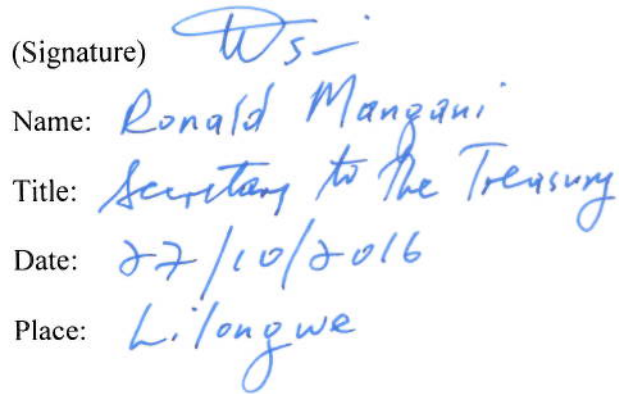 (Signature)
Name: Ronald Mangani
Title: Secretary to the Treasury
Date: 27/10/2016
Place: Lilongwe